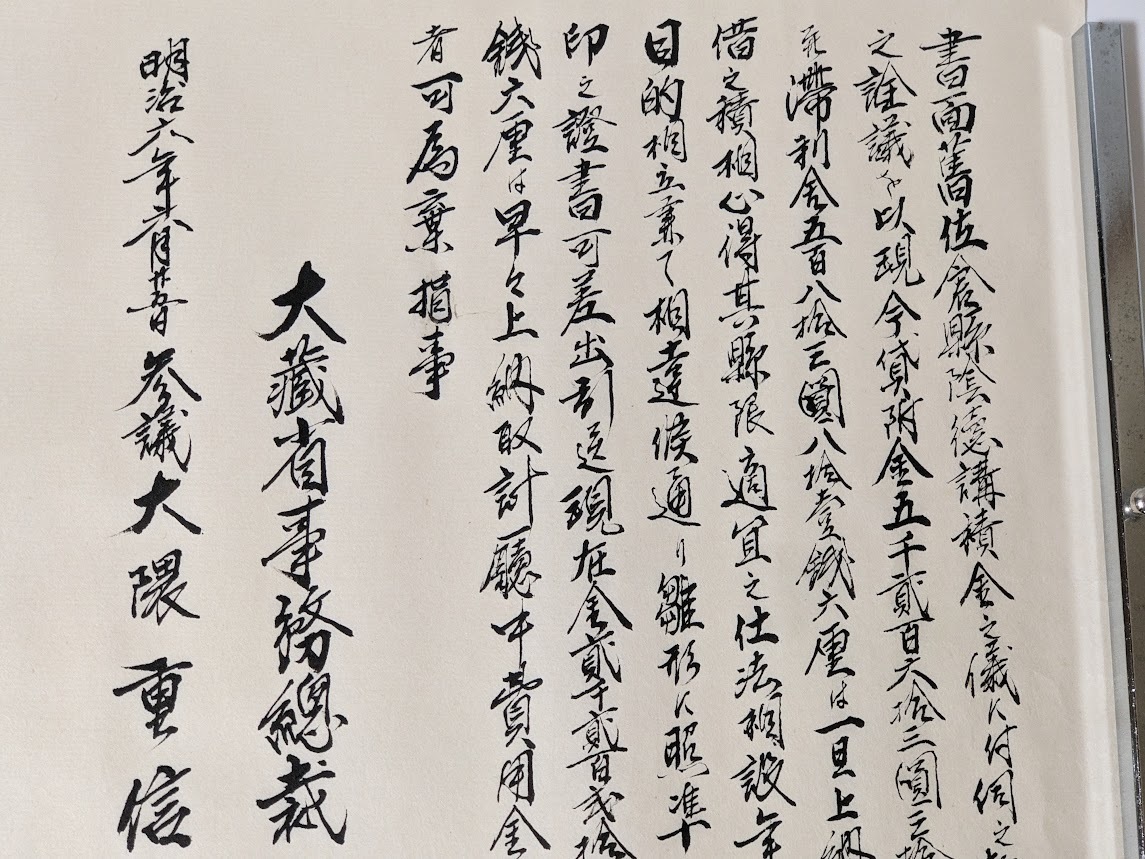 書面舊佐倉縣陰德講積金之儀に付伺之
之詮議を以現今貸附金五千貳百六拾三圓三拾
滯利金五百八拾三圓八拾壹錢六厘は一旦上納
借之積相心得其縣限適宜之仕法相設年
目的相立棄了相達候通り雛形に照準
印之證書可差出引送現在金貳千貳百貳拾
錢六厘は早々上納取計聽中費用金
者可為棄捐事
大藏省事務總裁
明治六年六月廿五日 參議大隈重信